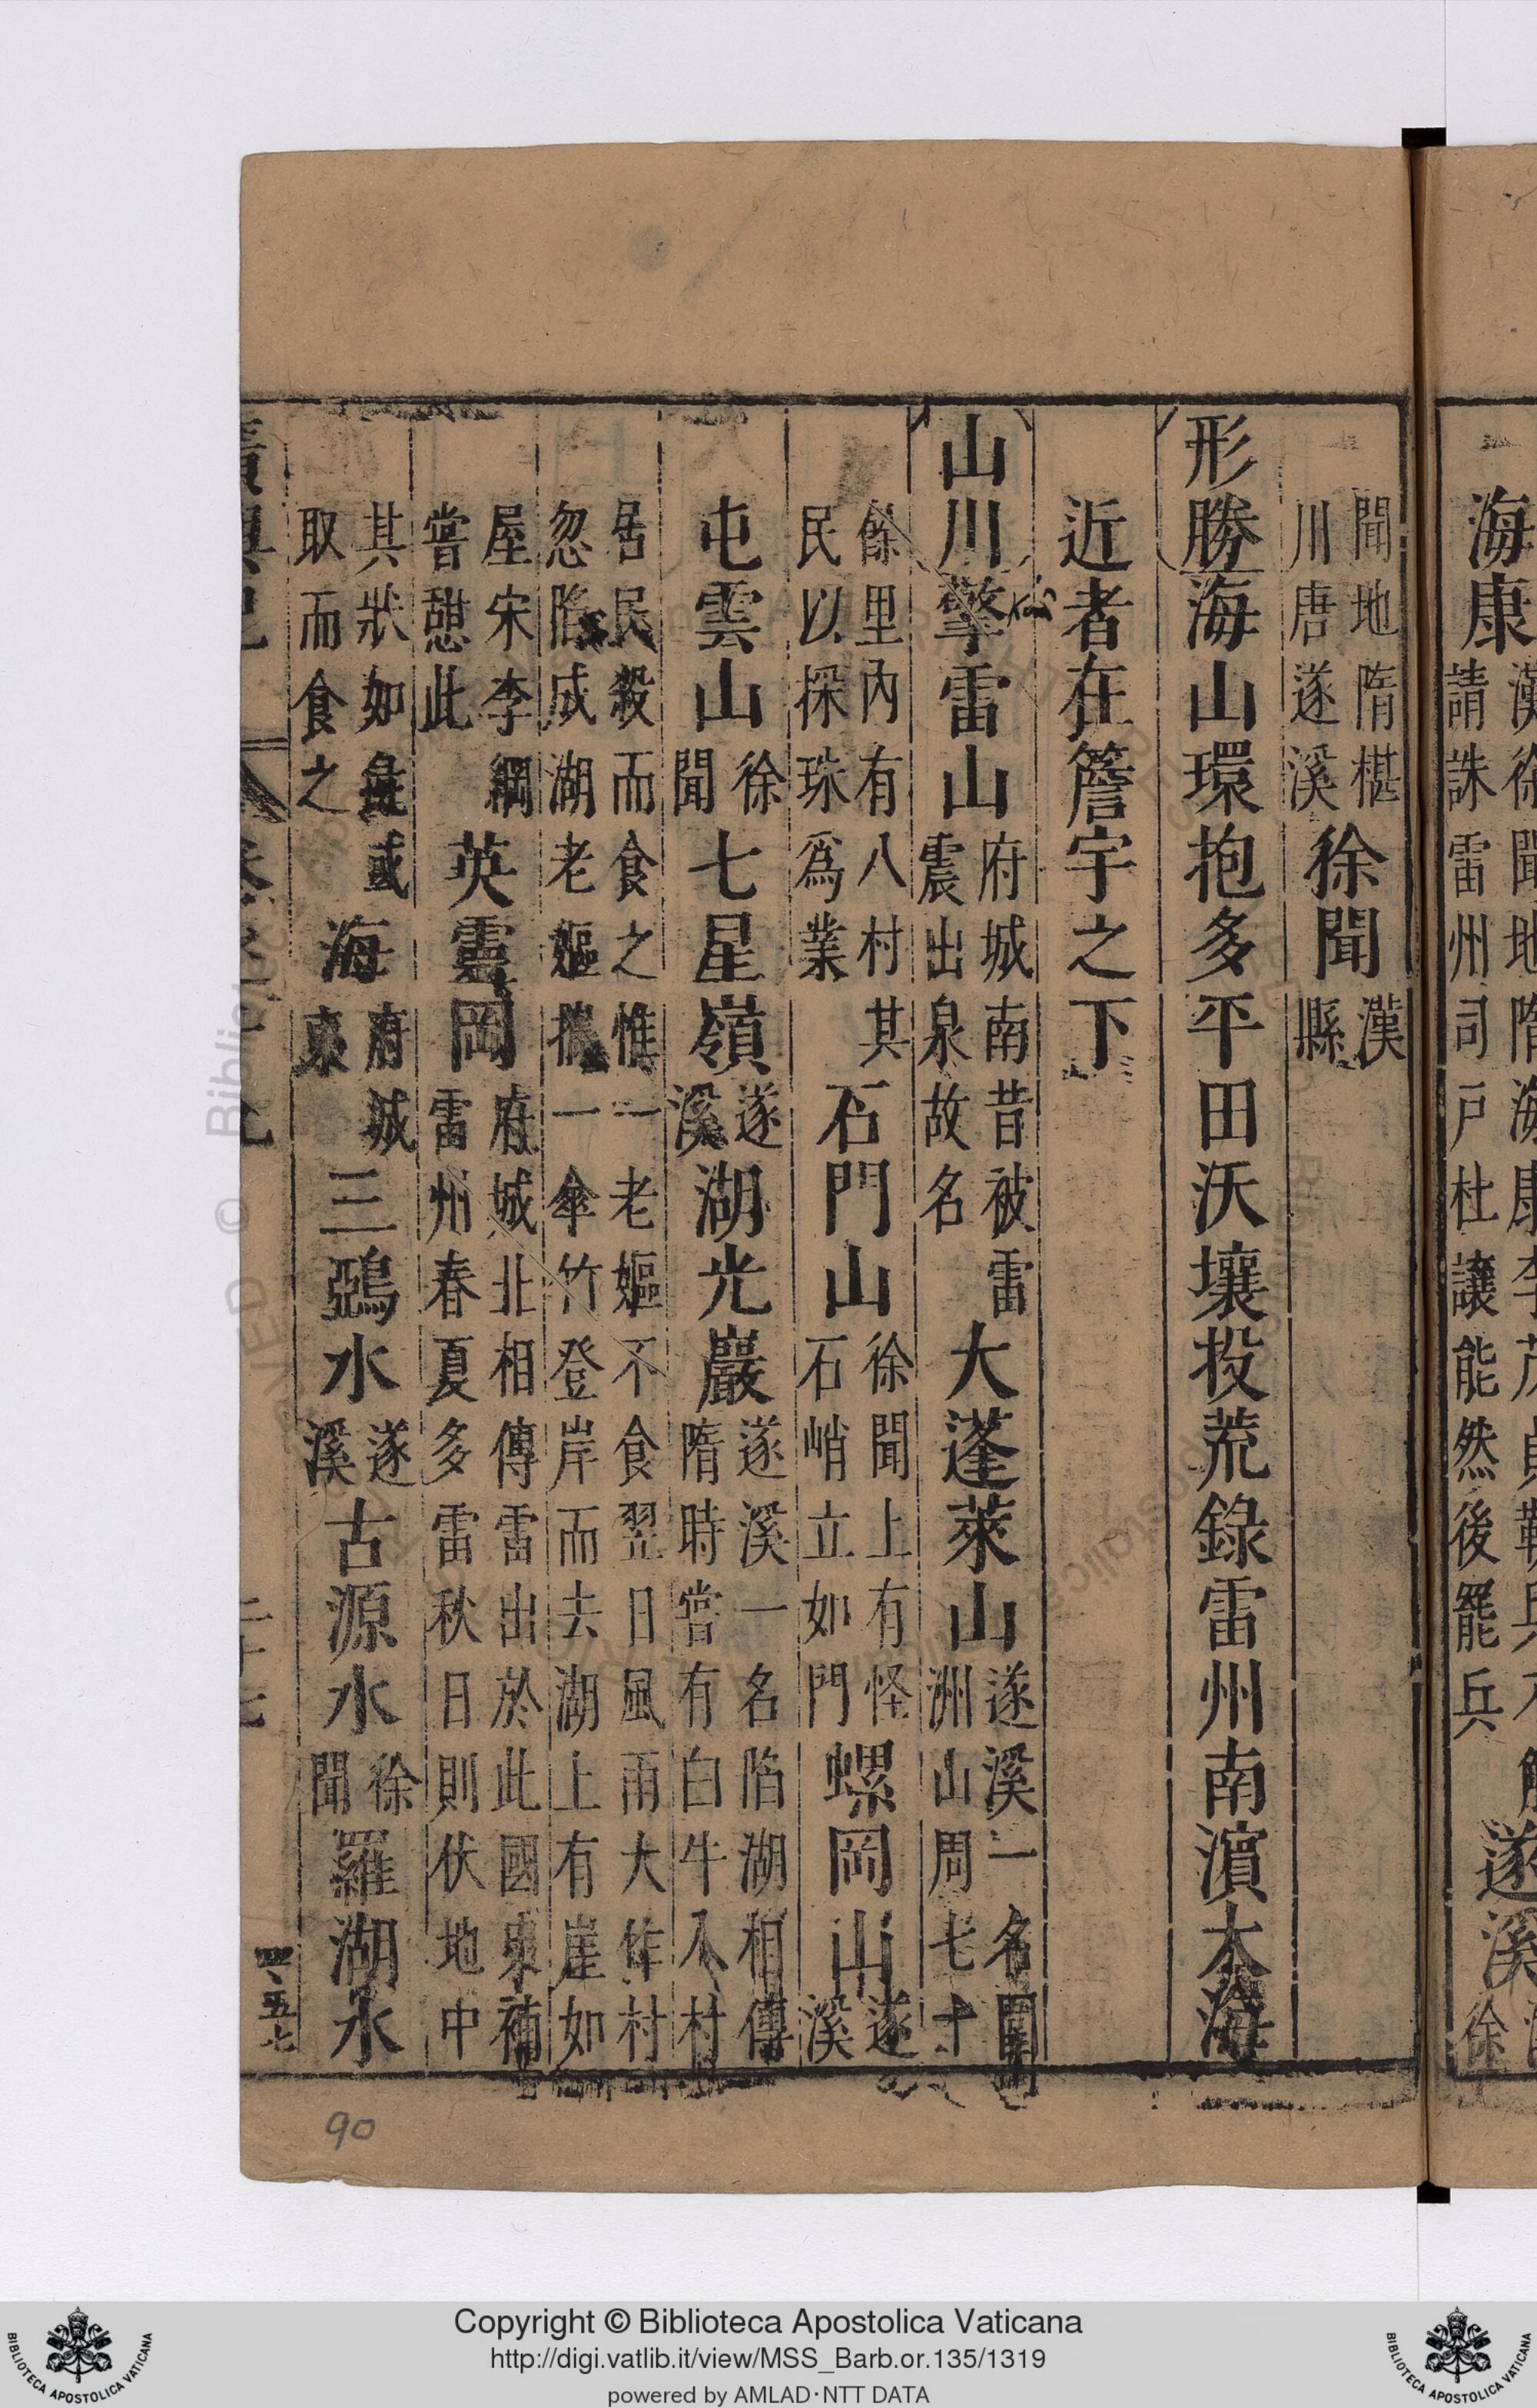 海康
請誅雷州司戸杜讓能然後罷兵
遂溪
徐
聞地隋椹
川唐遂溪
徐聞
漢
縣
形勝海山環抱多平田沃壤投荒錄雷州南濵大海
近者在簷宇之下
山川擎雷山
府城南昔被雷
震出泉故名
大蓬萊山
遂溪一名圍
洲山周七十
餘里內有八村其
民以探珠爲業
石門山
徐聞上有怪
石峭立如門
螺岡山
遂
溪
屯雲山
徐
聞
七星嶺
遂
溪
湖光巖
遂溪一名陷湖相傳
隋時嘗有白牛入村
居民殺而食之惟一老嫗不食翌日風雨大作村
忽陷成湖老嫗攜一傘竹登岸而去湖上有崖如
屋宋李綱
嘗憇此
英靈岡
府城北相傳雷出於此國史補
雷州春夏多雷秋日則伏地中
其狀如彘或
取而食之
海
府城
東
三鵶水
遂
溪
古源水
徐
聞
羅湖水
廣輿記
卷之十九
二十七
四、五七
90
Copyright © Biblioteca Apostolica Vaticana
http://digi.vatlib.it/view/MSS_Barb.or.135/1319
powered by AMLAD·NTT DATA
BIBLIOTECA APOSTOLICA VATICANA
BIBLIOTECA APOSTOLICA VATICANA